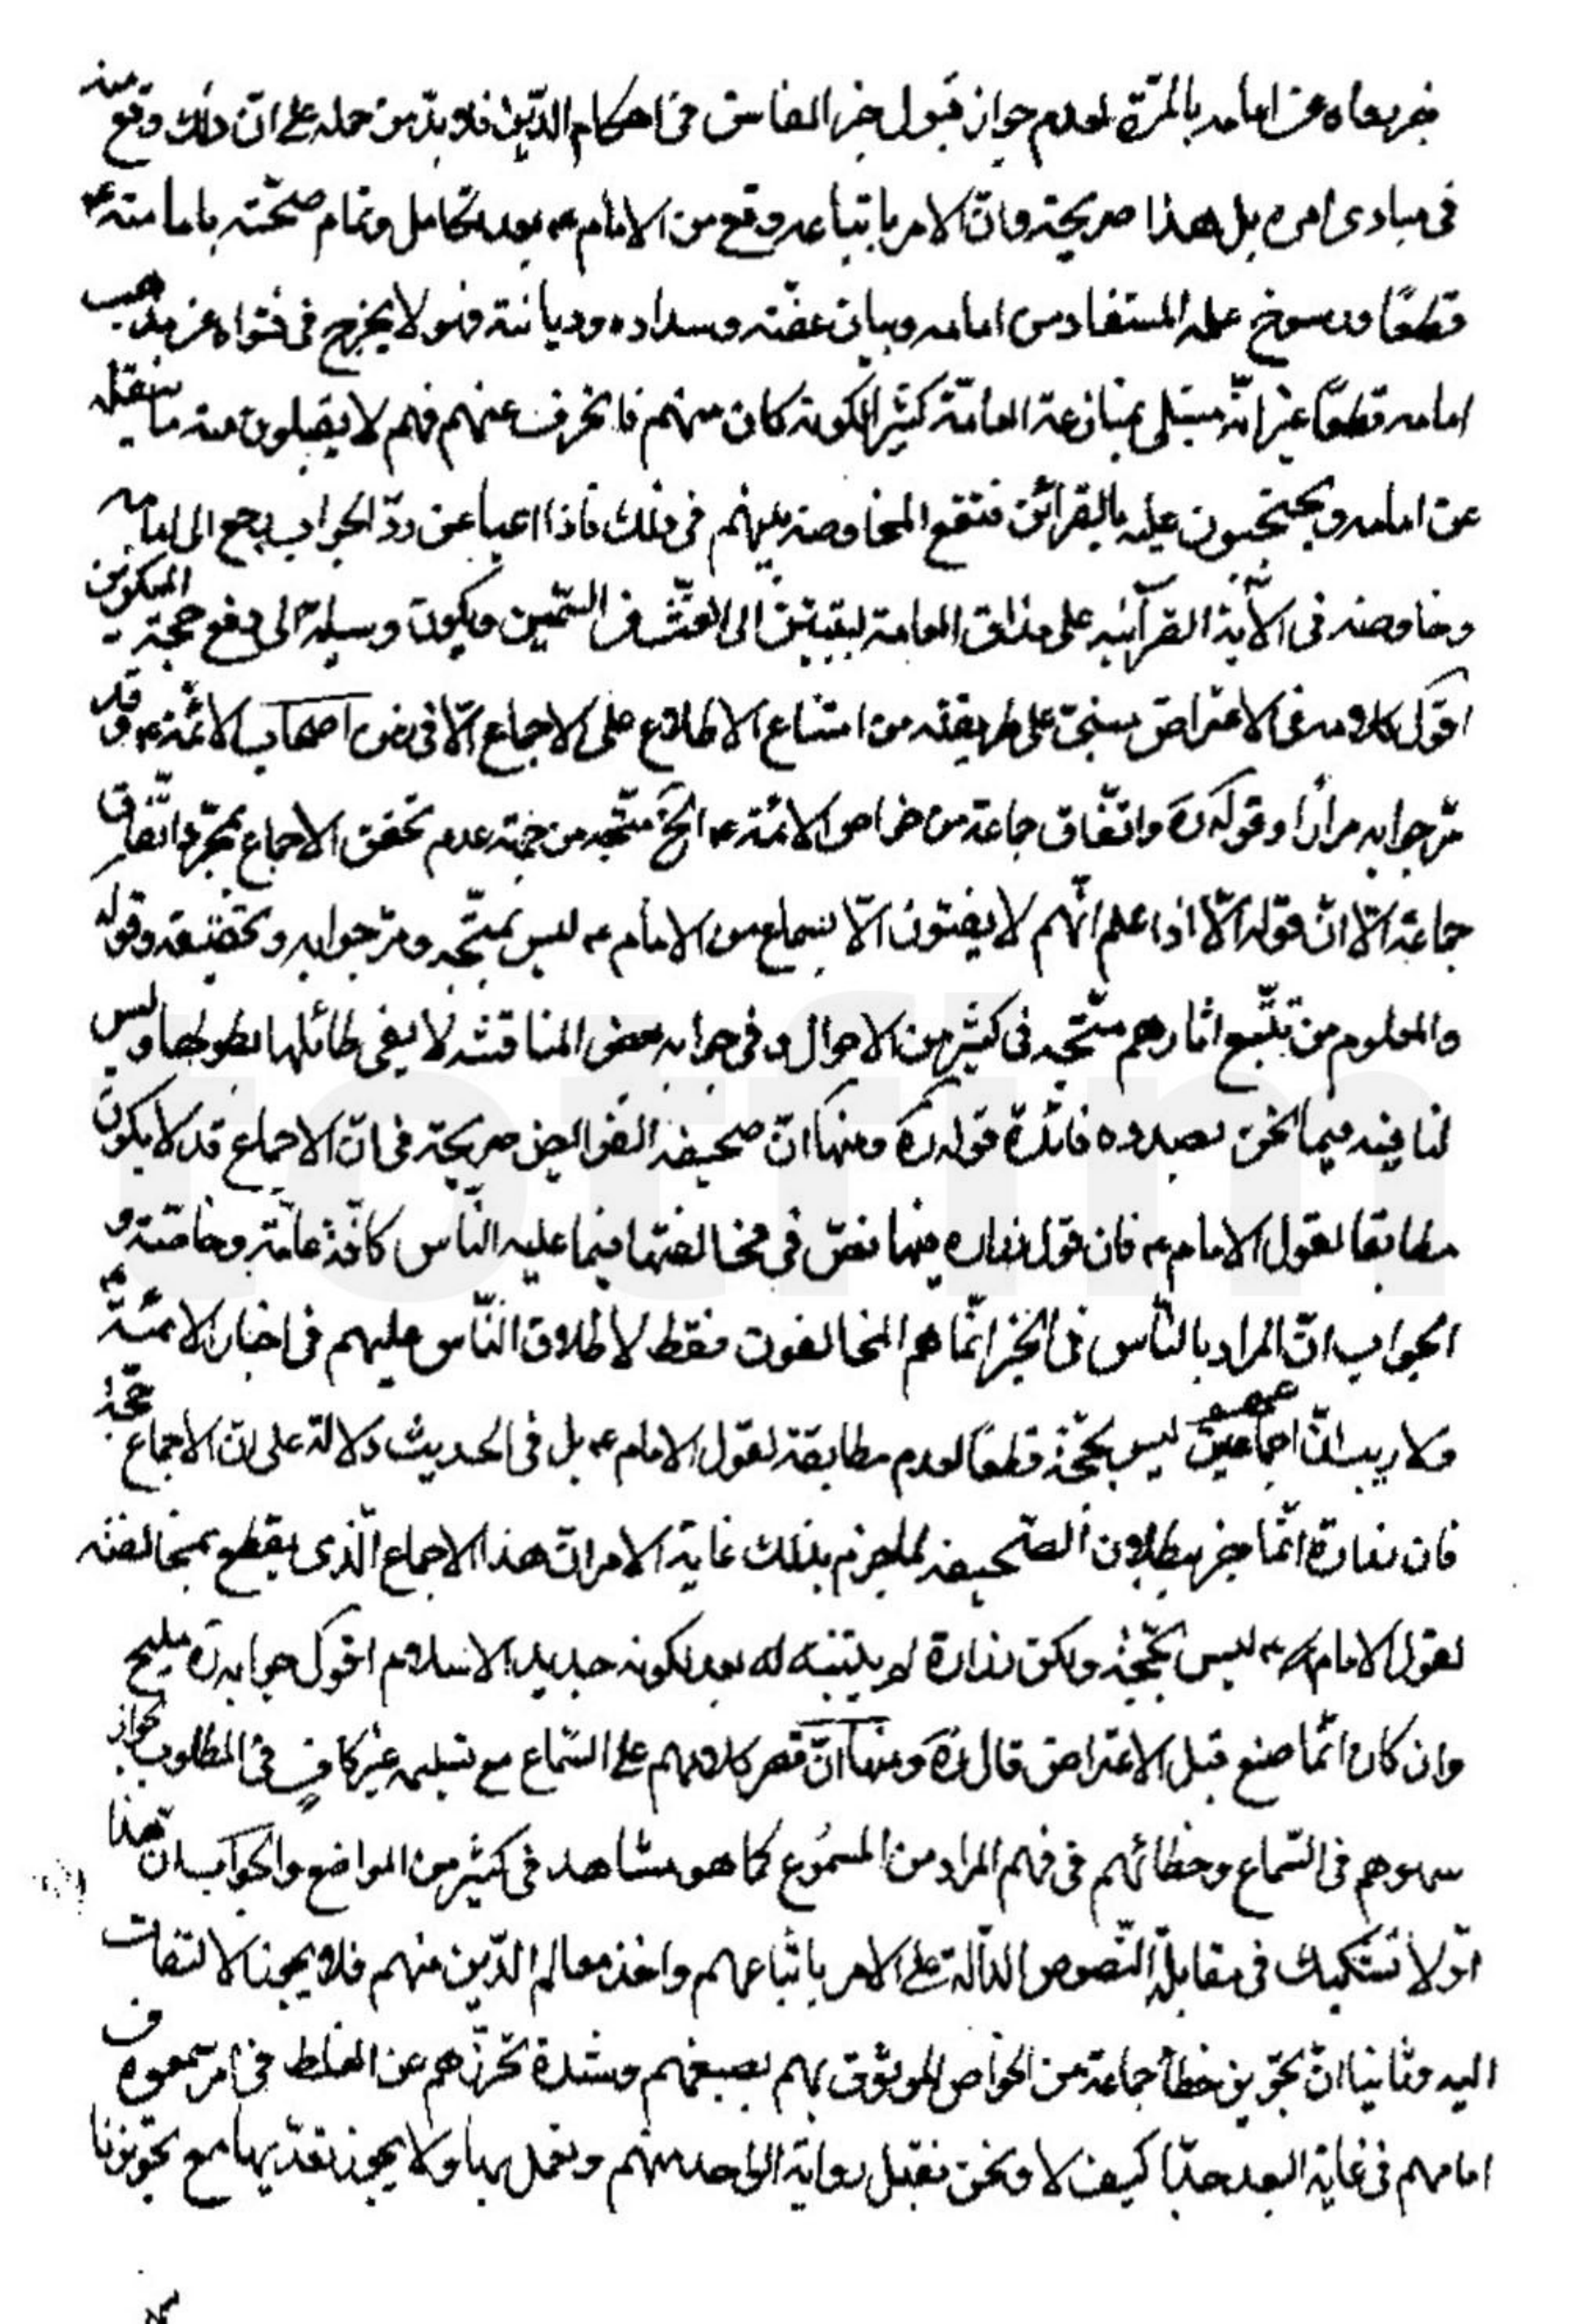 خبر يعاه عن امامه بالمرّة لعدم جواز قبول خبر الفاسق فى احكام الدّين فلا بدّ من حمله على انّ ذلك وقع منه
فى مبادى امره بل هذا صريحة وانّ الامر باتباعه وقع من الامام ع بعد تكامل وتمام صحّته بامامته ع
قطعًا ورسوخ علمه المستفاد من امامه وبيان عفّته وسداده وديانته فهو لا يخرج فى فتواه عن مذهب
امامه قطعًا غير انّه مبتلى بمنازعة العامّة كثيرا لكونه كان منهم فانحرف عنهم فهم لا يقبلون منه ما ينقله
عن امامه ويحتجّون عليه بالقرائن فتقع المخاوضة بينهم فى ذلك فاذا اعيا عن ردّ الجواب يرجع الى امامه
وخاوضه فى الآية القرآنيه على مذاق العامة ليقيّن الى الغثّ من السّمين ويكون وسيلة الى دفع حجّة المنكرين
اقول كلامه فى الاعتراض مبنىّ على طريقته من امتناع الاطلاع على الاجماع الّا فى زمن اصحاب الائمّة ع وقد
مرّ جوابه مرارًا وقوله ره واتّفاق جماعة من خواص الائمّة ع الخ متّجه من جهة عدم تحقق الاجماع بمجرّد اتّفاق
جماعة الّا انّ قوله الّا اذا علم انّهم لا يفتون الّا بسماع من الامام ع ليس بمتّجه ومرّ جوابه وتحقيقه وقوله
والمعلوم من تتبّع اثارهم متّجه فى كثير من الاحوال وفى جوابه بعض المناقشه لا يفى طائلها بطولها وليس
لنا فيه فيما نحن بصدده فائدة قوله ره ومنها انّ صحيفة الفرائض صريحة فى انّ الاجماع قد لا يكون
مطابقا لقول الامام ع فان قول زراره فيها نصّ فى مخالفتها فيما عليه النّاس كافّة عامّة وخاصّة و
الجواب انّ المراد بالنّاس فى الخبر انّما هم المخالفون فقط لاطلاق النّاس عليهم فى اخبار الائمّة ع
ولا ريب انّ اجماعهم ليس بحجّة قطعًا لعدم مطابقة لقول الامام ع بل فى الحديث دلالة على انّ الاجماع حجّة
فان زرارة انّما جزم ببطلان الصّحيفة لجزم بذلك غاية الامر انّ هذا الاجماع الّذى يقطع بمخالفته
لقول الامام ع ليس بحجّة ولكن زرارة لم يتنبّه له بعد لكونه جديد الاسلام اقول جوابه ره مليح
وان كان انّما صنع قبل الاعتراض قال ره ومنها انّ قصر كلامهم على السّماع مع تسليمه غير كافٍ فى المطلوب لجواز
سهوهم فى السّماع وخطائهم فى فهم المراد من المسموع كما هو مشاهد فى كثير من المواضع والجواب انّ هذا
اوّلا تشكيك فى مقابلة النّصوص الدّالّة على الامر باتّباعهم واخذ معالم الدّين منهم فلا يجوز الالتفات
اليه وثانيا انّ تجويز خطأ جماعة من الخواص الموثوق بهم بصبغهم وشدّة تحرّزهم عن الغلط فى امر سمعوه ف
امامهم فى غاية البعد جدّا كيف لا ونحن نقبل رواية الواحد منهم ونعمل بها ولا يجوز نقدّيها مع تجويزنا